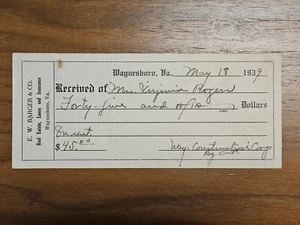 E. W. BARGER & CO.
Real Estate, Loans and Insurance
Waynesboro, Va.
Waynesboro, Va. May 18 1939
Received of Mrs. Virginia Rogers
Forty five and 00/100 Dollars
$45.00
Way. Construction Corp